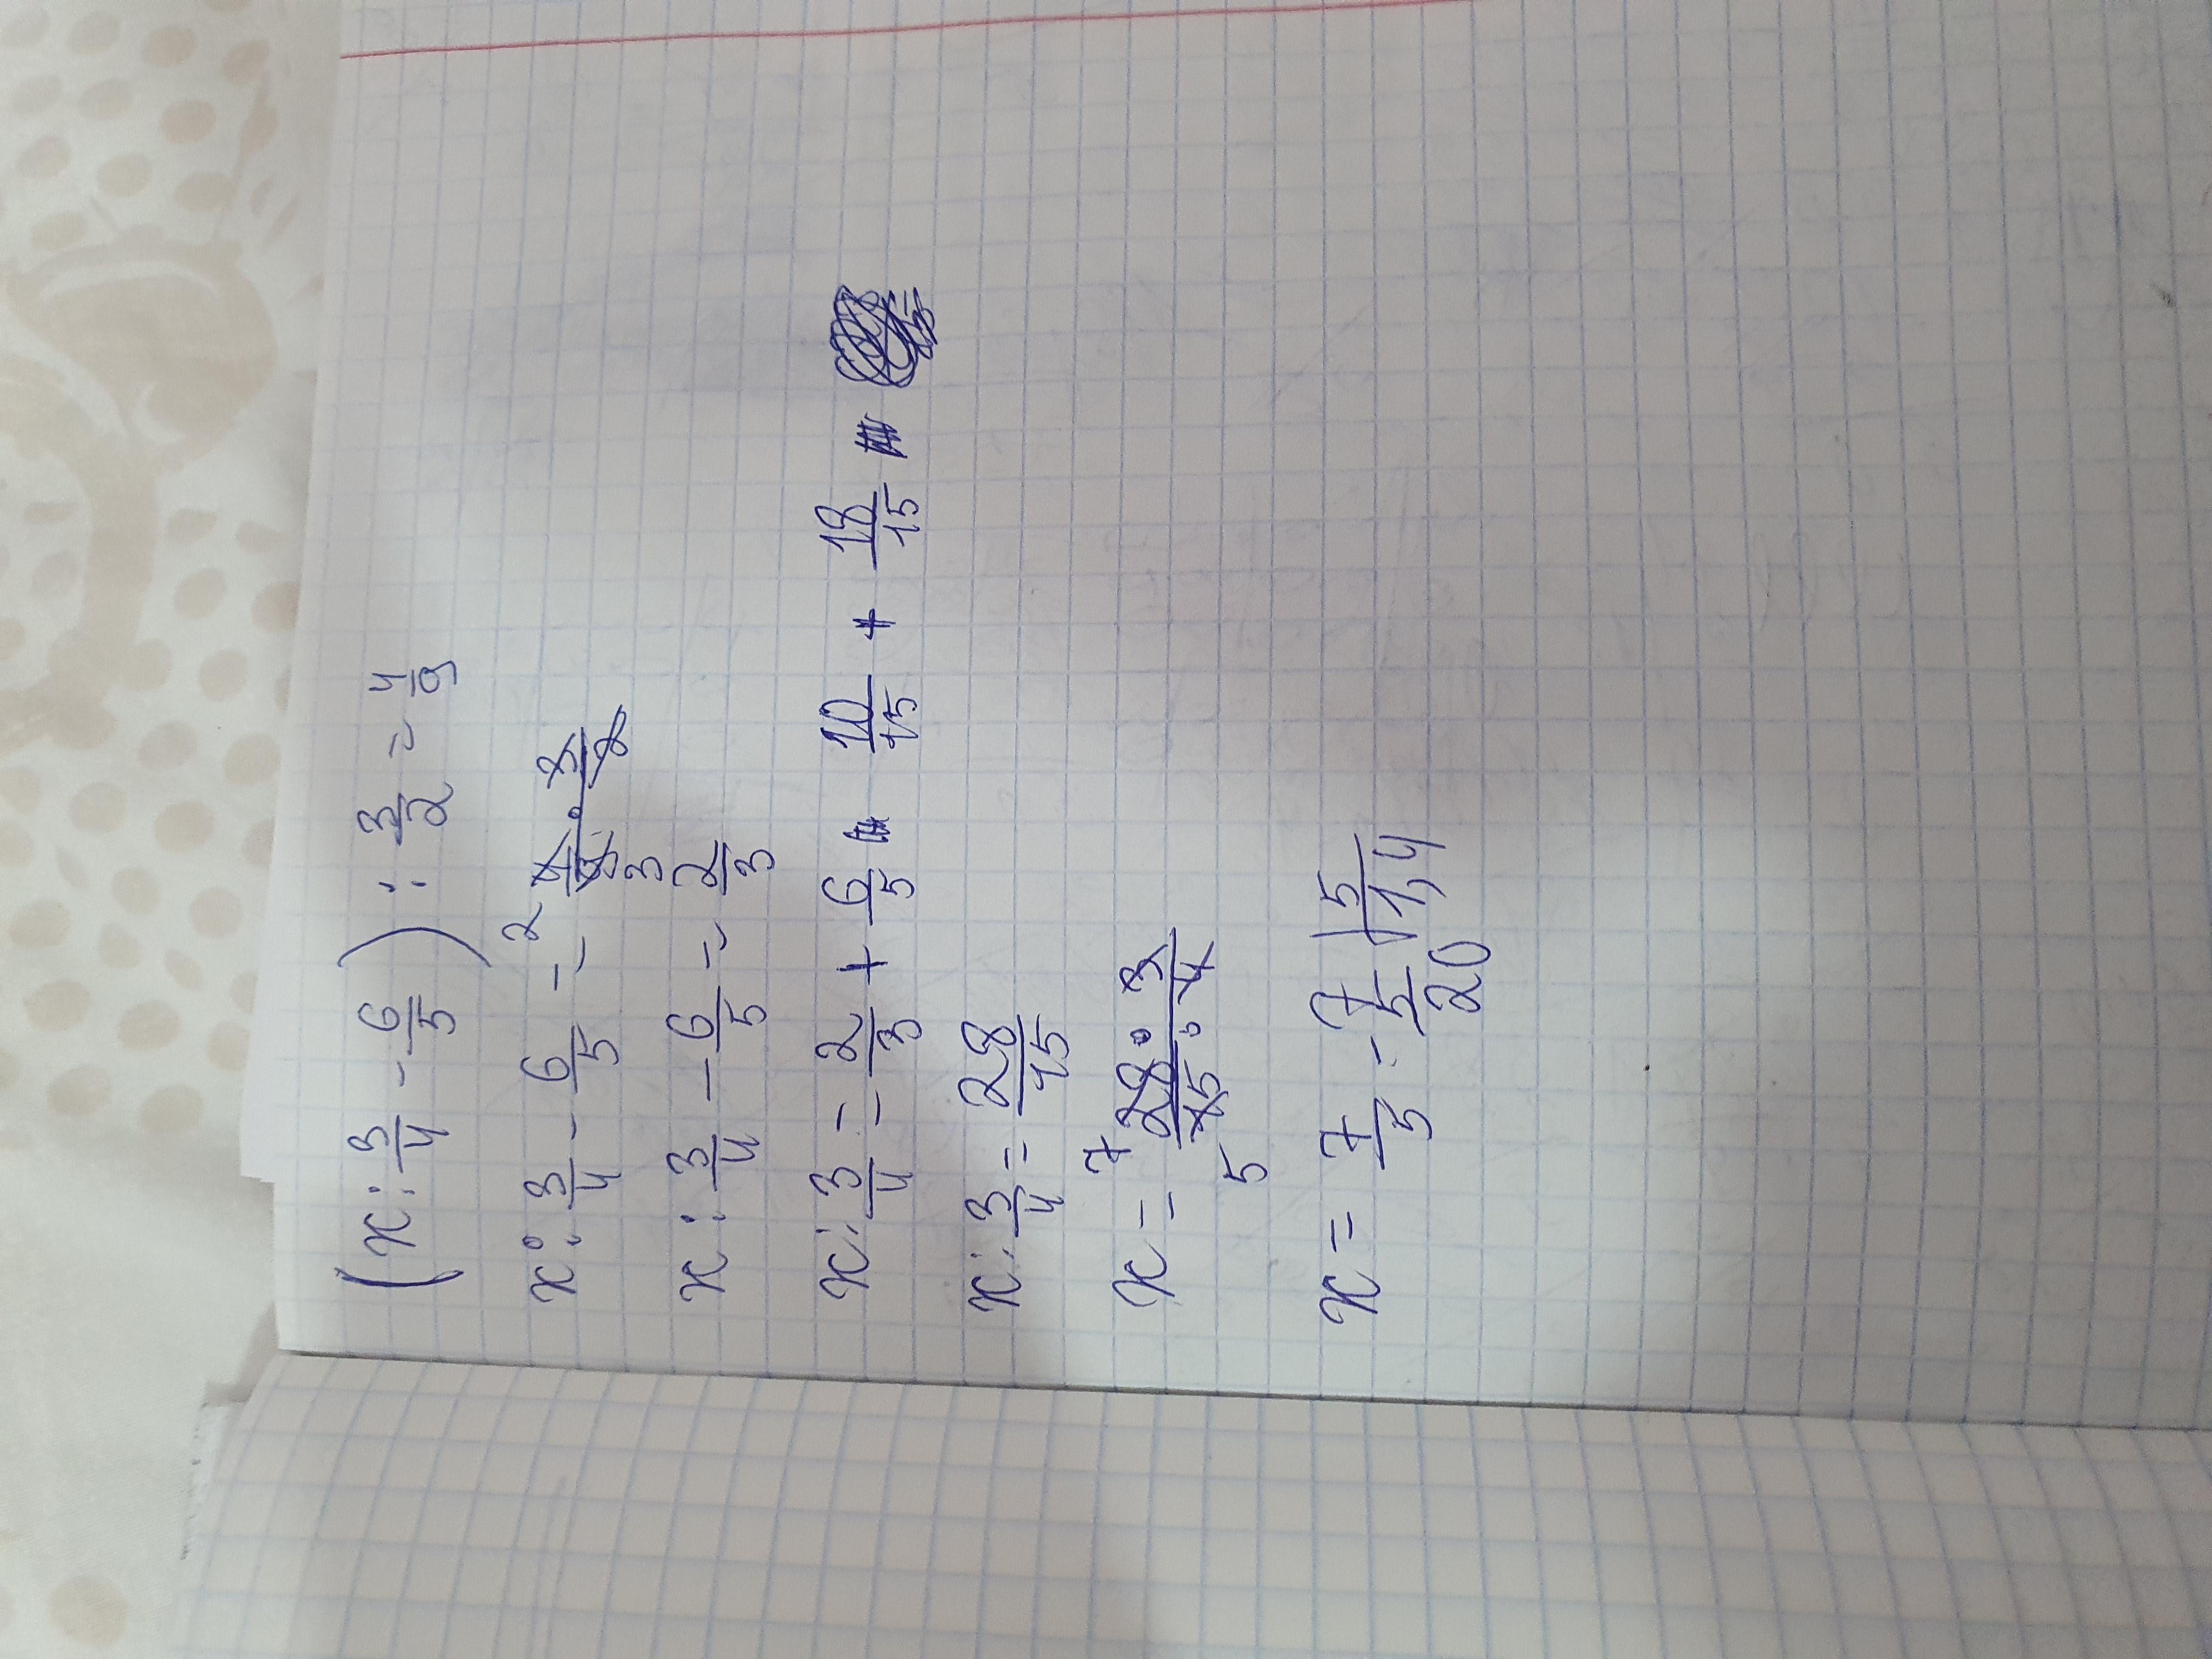 (x : 3/4 - 6/5) : 3/2 = 4/9
x : 3/4 - 6/5 = 2 4/9 3 · 3/2
x : 3/4 - 6/5 = 2/3
x : 3/4 = 2/3 + 6/5 = 10/15 + 18/15 =
x : 3/4 = 28/15
x = 7 28 · 3 / 15 · 4 5
x = 7/5 - 7 | 5
5 1,4
20